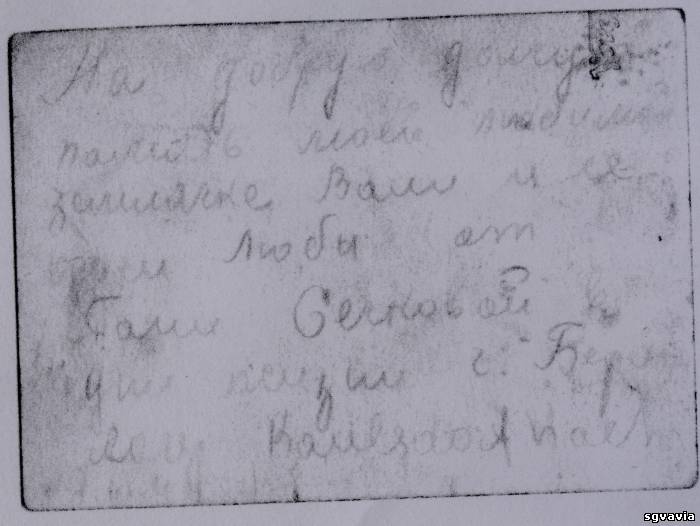 На добрую долгую
память моей любимой
землячке Вали и се
Любы от
Гали Сечковой в
дни жизни г. Бер
лин. Kaulsdorf
sgvavia